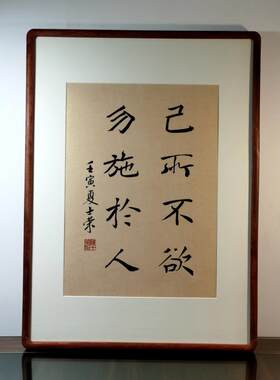 己所不欲
勿施於人
壬寅夏士荣